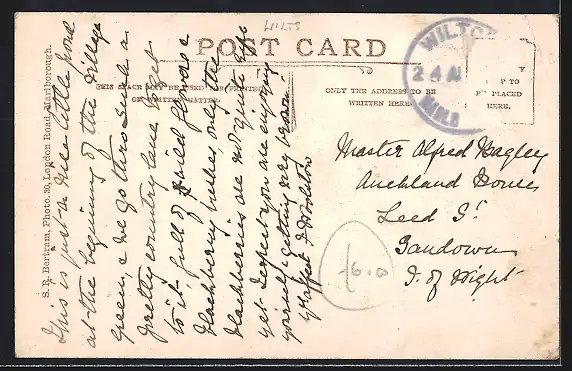 WILTS
POST CARD
WILTO
24 AU
THIS SPACE MAY BE USED FOR PRINTED
OR WRITTEN MATTER.
ONLY THE ADDRESS TO BE
WRITTEN HERE.
Y
P TO
PLACED
HERE.
S. R. Bertram, Photo. 30, London Road, Marlborough.
This is just a nice little pond
at the beginning of the village
green, & we go thro such a
pretty country lane to get
to it full of wild flowers &
blackberry bushes, only the
blackberries are not quite ripe
yet. I expect you are enjoying
yourself & getting very brown
J Woolston
Master Alfred Bagley
Auckland House
Leed St
Sandown
I. of Wight
6.0